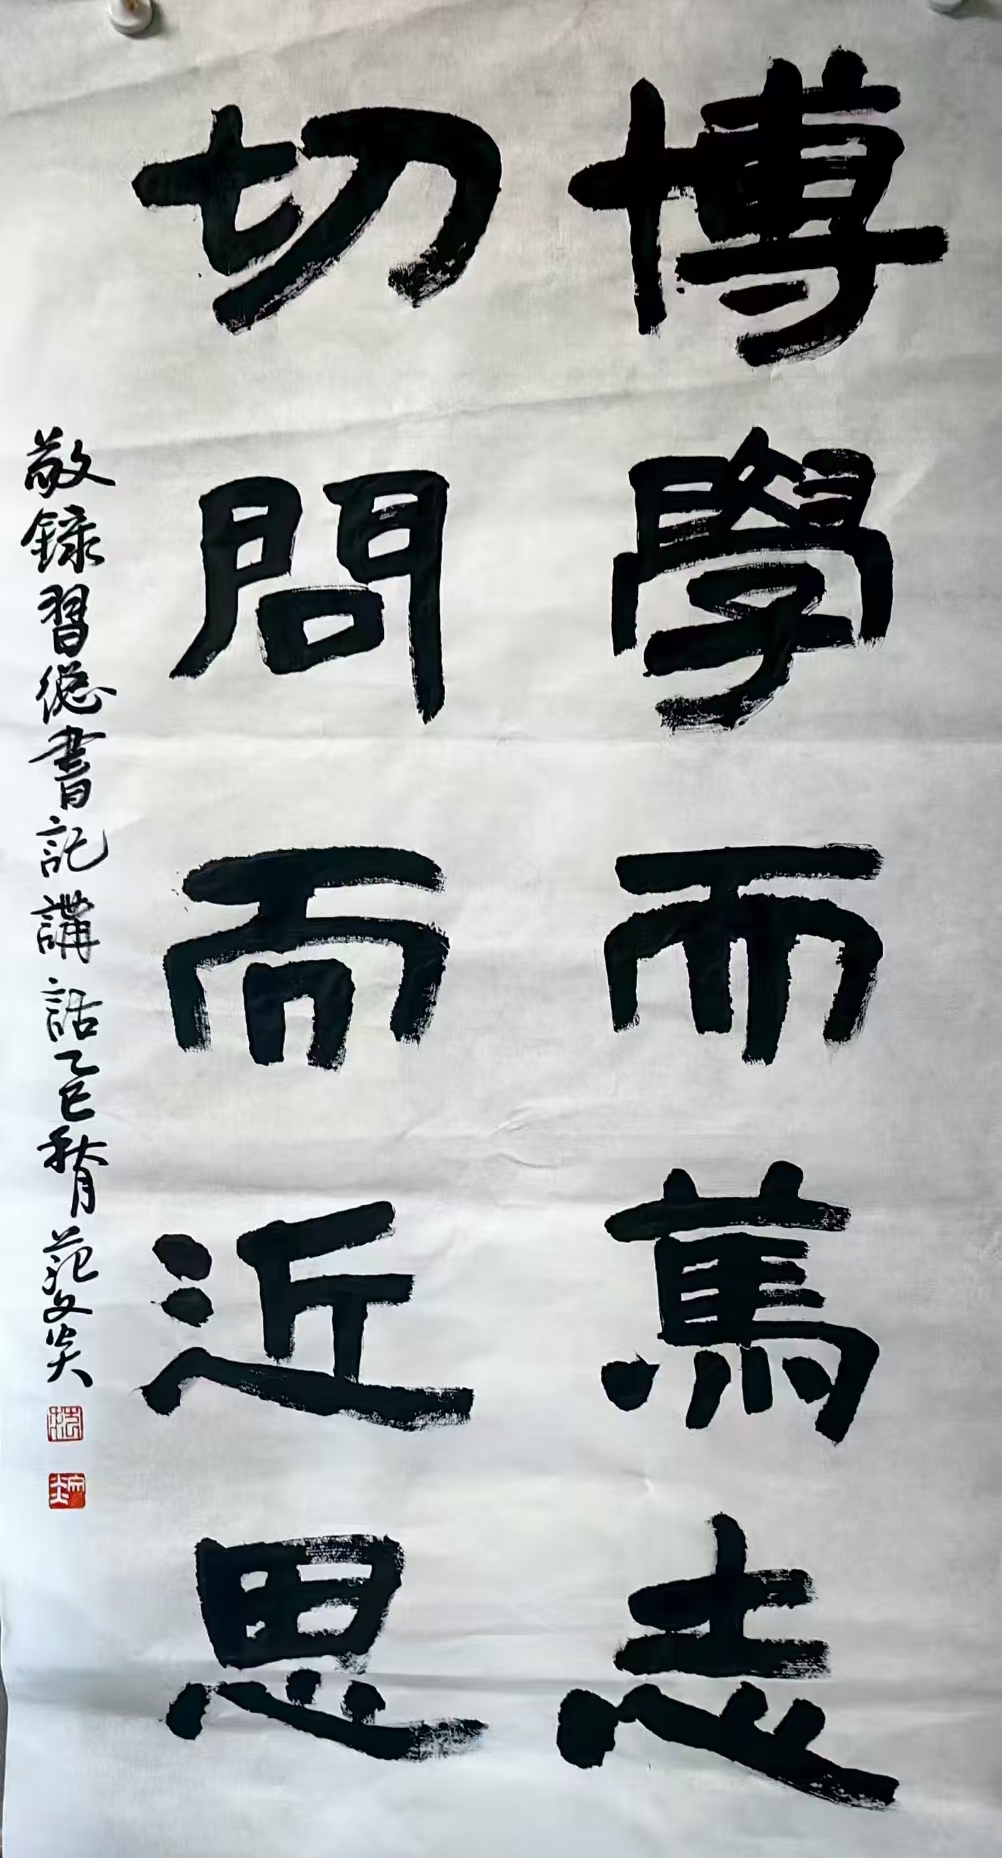 博學而篤志
切問而近思
敬錄習總書記講話乙巳秋月范文炎